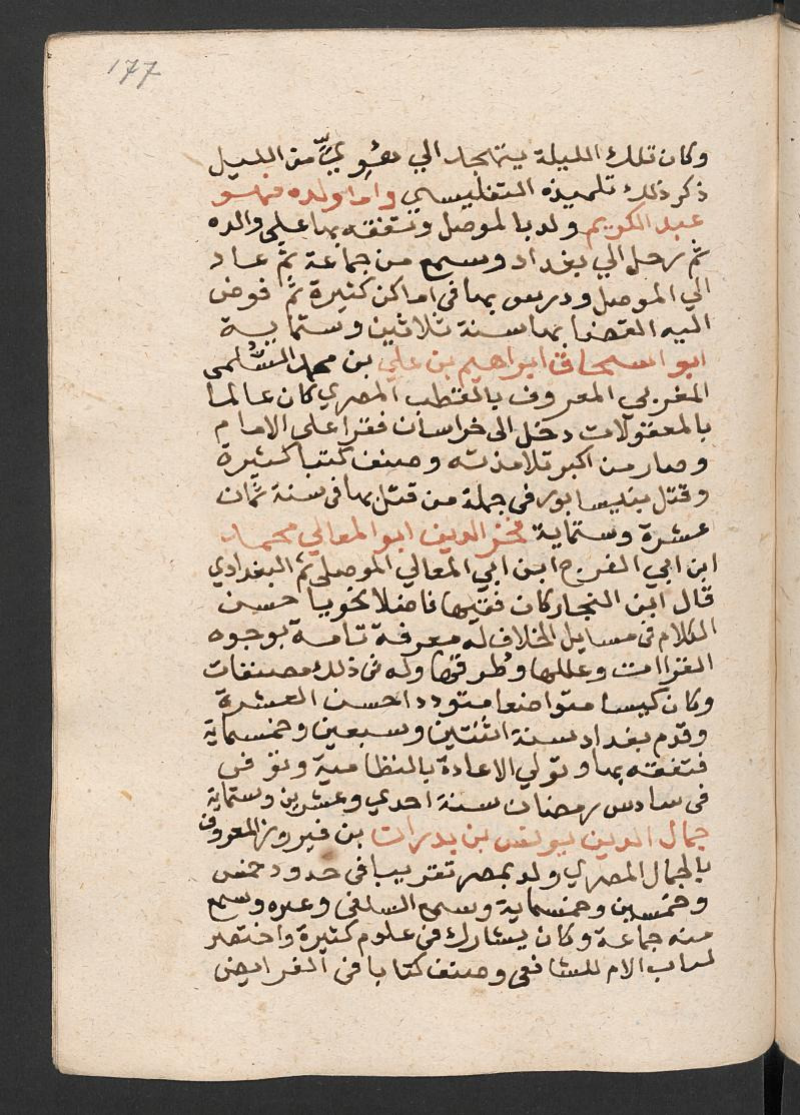 177
وكان تلك الليلة يتهجد الي هوي من الليل
ذكر ذلك تلميذه التفليسي واما ولده فهو
عبد الكريم ولد بالموصل وتفقه بها علي والده
ثم رحل الي بغداد وسمع من جماعة ثم عاد
الي الموصل ودرس بها في اماكن كثيرة ثم فوض
اليه القضا بها سنة ثلاثين وستماية
ابو اسحاق ابراهيم بن علي بن محمد السُّلمى
المغربي المعروف بالقطب المصري كان عالما
بالمعقولات دخل الى خراسان فقرا علي الامام
وصار من اكبر تلامذته وصنف كتبا كثيرة
وقتل بنيسابور في جملة من قتل بها في سنة ثمان
عشرة وستماية فخر الدين ابو المعالي محمد
ابن ابي الفرج ابن ابي المعالي الموصلي ثم البغدادي
قال ابن النجار كان فقيها فاضلا نحويا حسن
الكلام في مسايل الخلاف له معرفة تامة بوجوه
القراات وعللها وطرقها وله في ذلك مصنفات
وكان كيسا متواضعا متوددا حسن العشرة
وقدم بغداد سنة اثنتين وسبعين وخمسماية
فتفقه بها وتولي الاعادة بالنظامية وتوفى
في سادس رمضان سنة احدي وعشرين وستماية
جمال الدين يونس بن بدران بن فيروز المعروف
بالجمال المصري ولد بمصر تقريبا في حدود خمس
وخمسين وخمسماية وسمع السلفى وغيره وسمع
منه جماعة وكان يشارك في علوم كثيرة واختصر
كتاب الام للشافعي وصنف كتابا في الفرايض